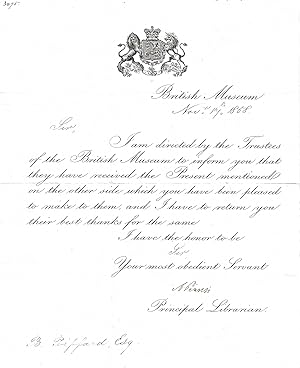 British Museum
Nov. 17 1868
Sir,
I am directed by the Trustees
of the British Museum to inform you that
they have received the Present mentioned
on the other side which you have been pleased
to make to them, and I have to return you
their best thanks for the same
I have the honor to be
Sir
Your most obedient Servant
Principal Librarian.
B. Esq